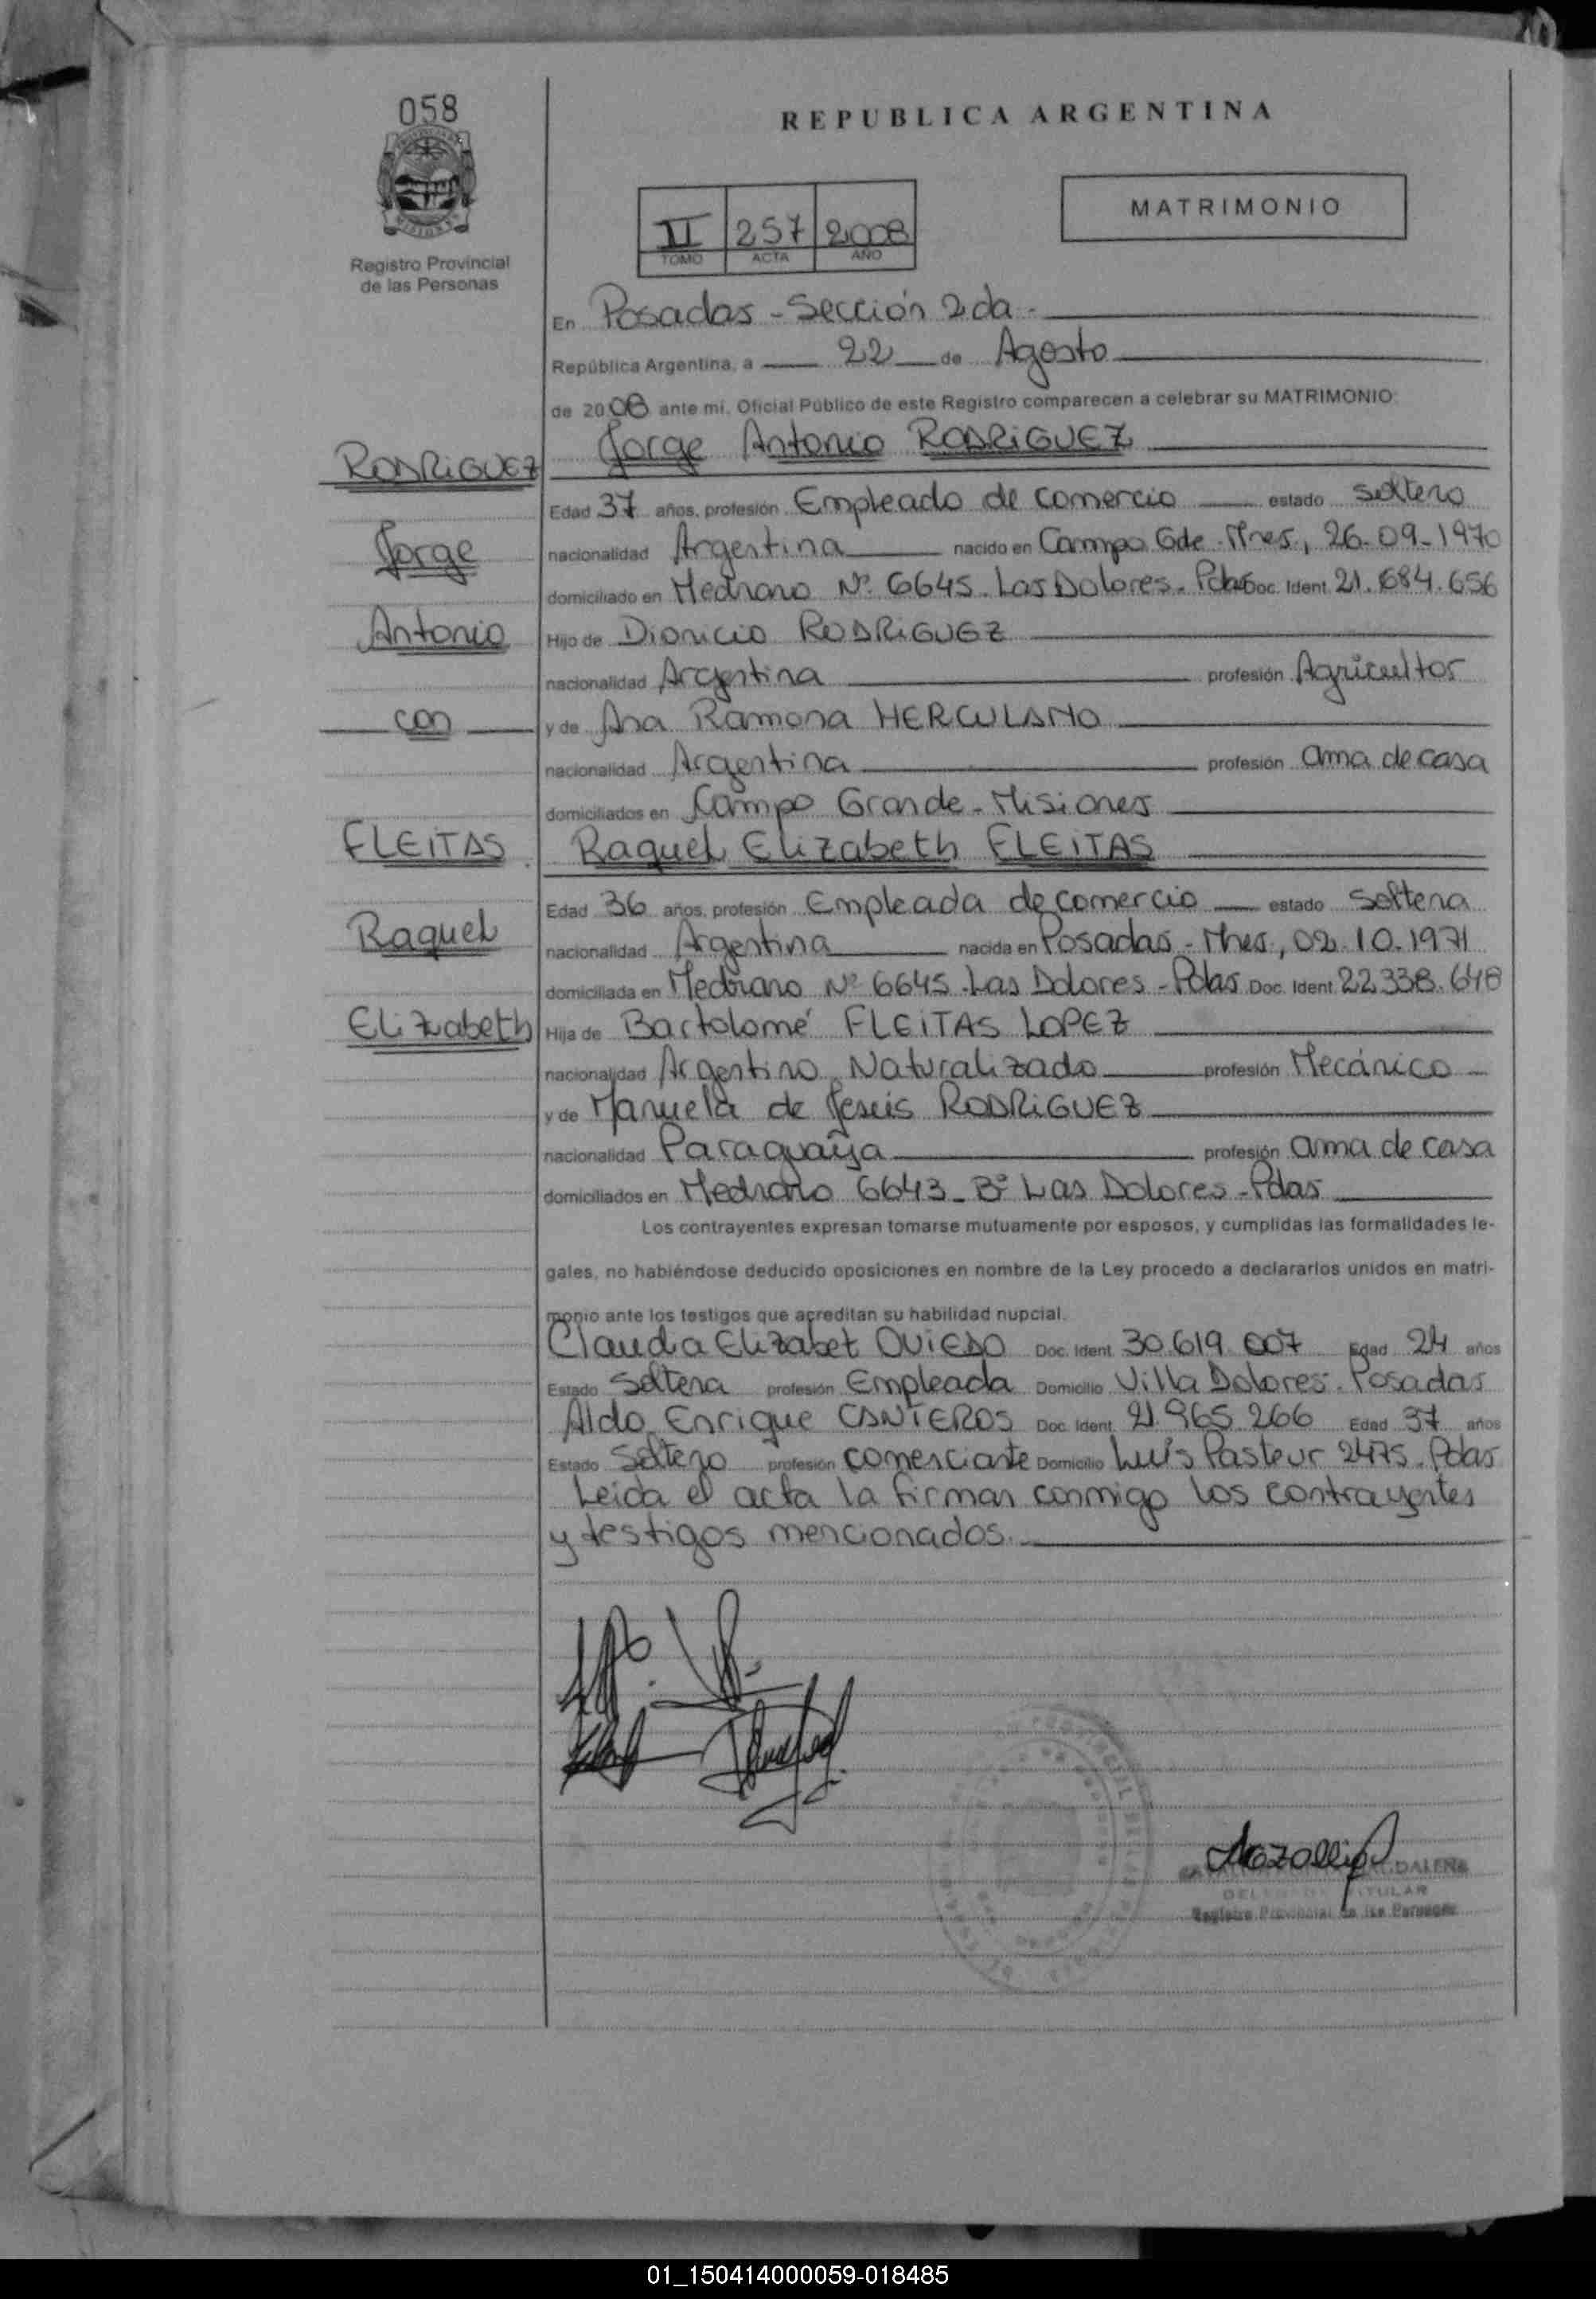 058
Registro Provincial
de las Personas
REPUBLICA ARGENTINA
II 257 2008
TOMO ACTA AÑO
MATRIMONIO
En Posadas - Sección 2da -
República Argentina, a 22 de Agosto
de 2008 ante mí, Oficial Público de este Registro comparecen a celebrar su MATRIMONIO:
Jorge Antonio RODRIGUEZ
RODRIGUEZ
Edad 37 años, profesión Empleado de comercio estado soltero
Jorge
nacionalidad Argentina nacido en Campo Gde - Mnes, 26-09-1970
domiciliado en Medrano Nº 6645. Las Dolores - Pdas Doc. Ident. 21.684.656
Antonio
Hijo de Dionicio RODRIGUEZ
nacionalidad Argentina profesión Agricultor
con
y de Ana Ramona HERCULANO
nacionalidad Argentina profesión ama de casa
domiciliados en Campo Grande - Misiones
FLEITAS
Raquel Elizabeth FLEITAS
Edad 36 años, profesión Empleada de comercio estado soltera
Raquel
nacionalidad Argentina nacida en Posadas - Mnes, 02.10.1971
domiciliada en Medrano Nº 6645 - Las Dolores - Pdas Doc. Ident. 22.338.648
Elizabeth
Hija de Bartolomé FLEITAS LOPEZ
nacionalidad Argentino Naturalizado profesión Mecánico
y de Manuela de Jesús RODRIGUEZ
nacionalidad Paraguaya profesión ama de casa
domiciliados en Medrano 6643 - Bº Las Dolores - Pdas
Los contrayentes expresan tomarse mutuamente por esposos, y cumplidas las formalidades le-
gales, no habiéndose deducido oposiciones en nombre de la Ley procedo a declararlos unidos en matri-
monio ante los testigos que acreditan su habilidad nupcial.
Claudia Elizabet OVIEDO Doc. Ident. 30.619.007 Edad 24 años
Estado Soltera profesión Empleada Domicilio Villa Dolores - Posadas
Aldo Enrique CANTEROS Doc. Ident. 21.965.266 Edad 37 años
Estado Soltero profesión comerciante Domicilio Luis Pasteur 2475 - Pdas
Leída el acta la firman conmigo los contrayentes
y testigos mencionados.
Registro Provincial de las Personas
01_150414000059-018485